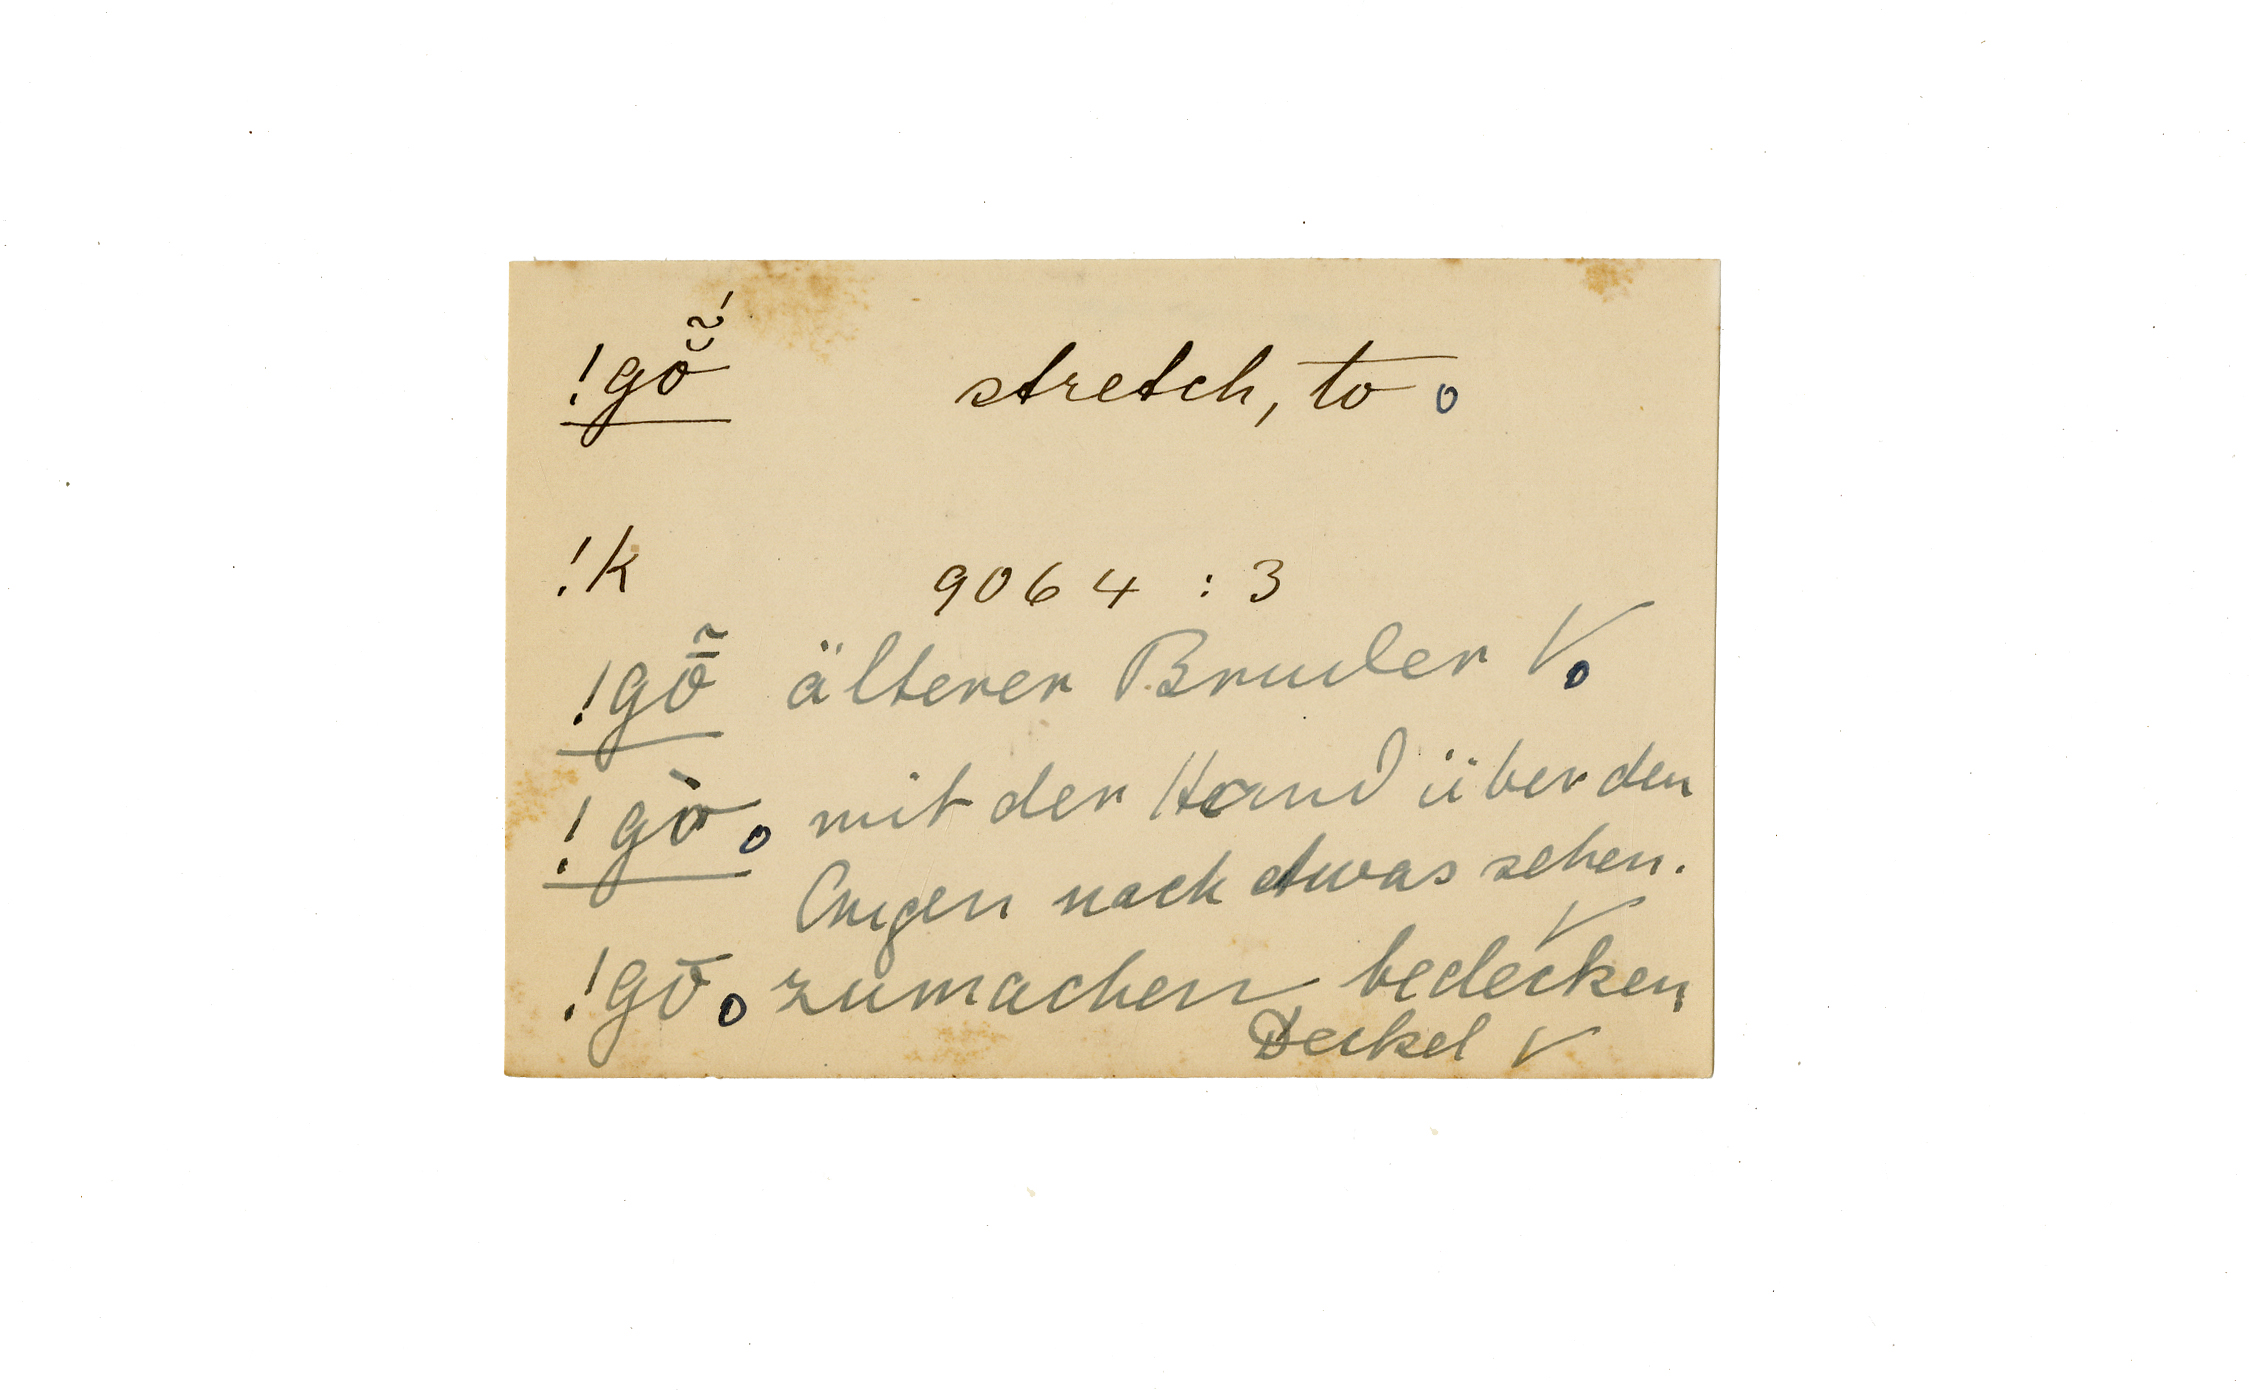 !gŏ̃́ stretch, to o
!k 9064 : 3
!gō̃ älterer Bruder V o
!gò o mit der Hand über den
Augen nach etwas sehen.
V
!gō o zumachen, bedecken,
Deckel V